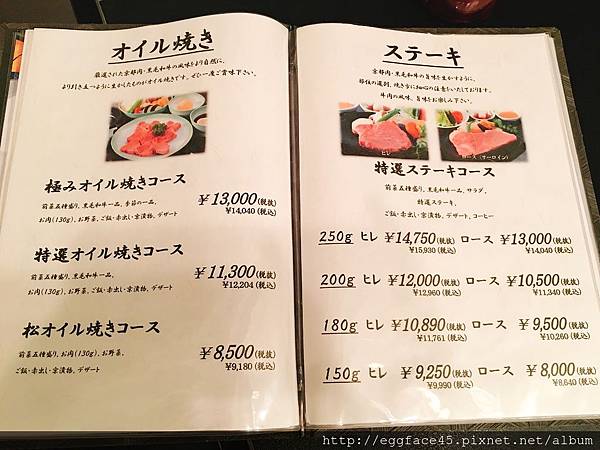 オイル焼き
厳選された京都肉・黒毛和牛の風味をより自然に、
より引き立つように生かしたものがオイル焼きです。ぜひ一度ご賞味下さい。
極みオイル焼きコース
¥13,000(税抜)
¥14,040(税込)
前菜五種盛り、黒毛和牛一品、季節の一品、
お肉(130g)、お野菜、ご飯・赤出し・京漬物、デザート
特選オイル焼きコース
¥11,300(税抜)
¥12,204(税込)
前菜五種盛り、黒毛和牛一品、
お肉(130g)、お野菜、ご飯・赤出し・京漬物、デザート
松オイル焼きコース
¥8,500(税抜)
¥9,180(税込)
前菜五種盛り、お肉(130g)、お野菜、
ご飯・赤出し・京漬物、デザート
ステーキ
京都肉・黒毛和牛の旨味を生かすように、
部位の選別、焼き方に細心の注意をいたしております。
牛肉の風味、旨味をお楽しみ下さい。
ヒレ
ロース(サーロイン)
特選ステーキコース
前菜五種盛り、黒毛和牛一品、サラダ、
特選ステーキ、
ご飯・赤出し・京漬物、デザート、コーヒー
250g ヒレ ¥14,750(税抜) ロース ¥13,000(税抜)
¥15,930(税込) ¥14,040(税込)
200g ヒレ ¥12,000(税抜) ロース ¥10,500(税抜)
¥12,960(税込) ¥11,340(税込)
180g ヒレ ¥10,890(税抜) ロース ¥9,500(税抜)
¥11,761(税込) ¥10,260(税込)
150g ヒレ ¥9,250(税抜) ロース ¥8,000(税抜)
¥9,990(税込) ¥8,640(税込)
http://eggface45.pixnet.net/album